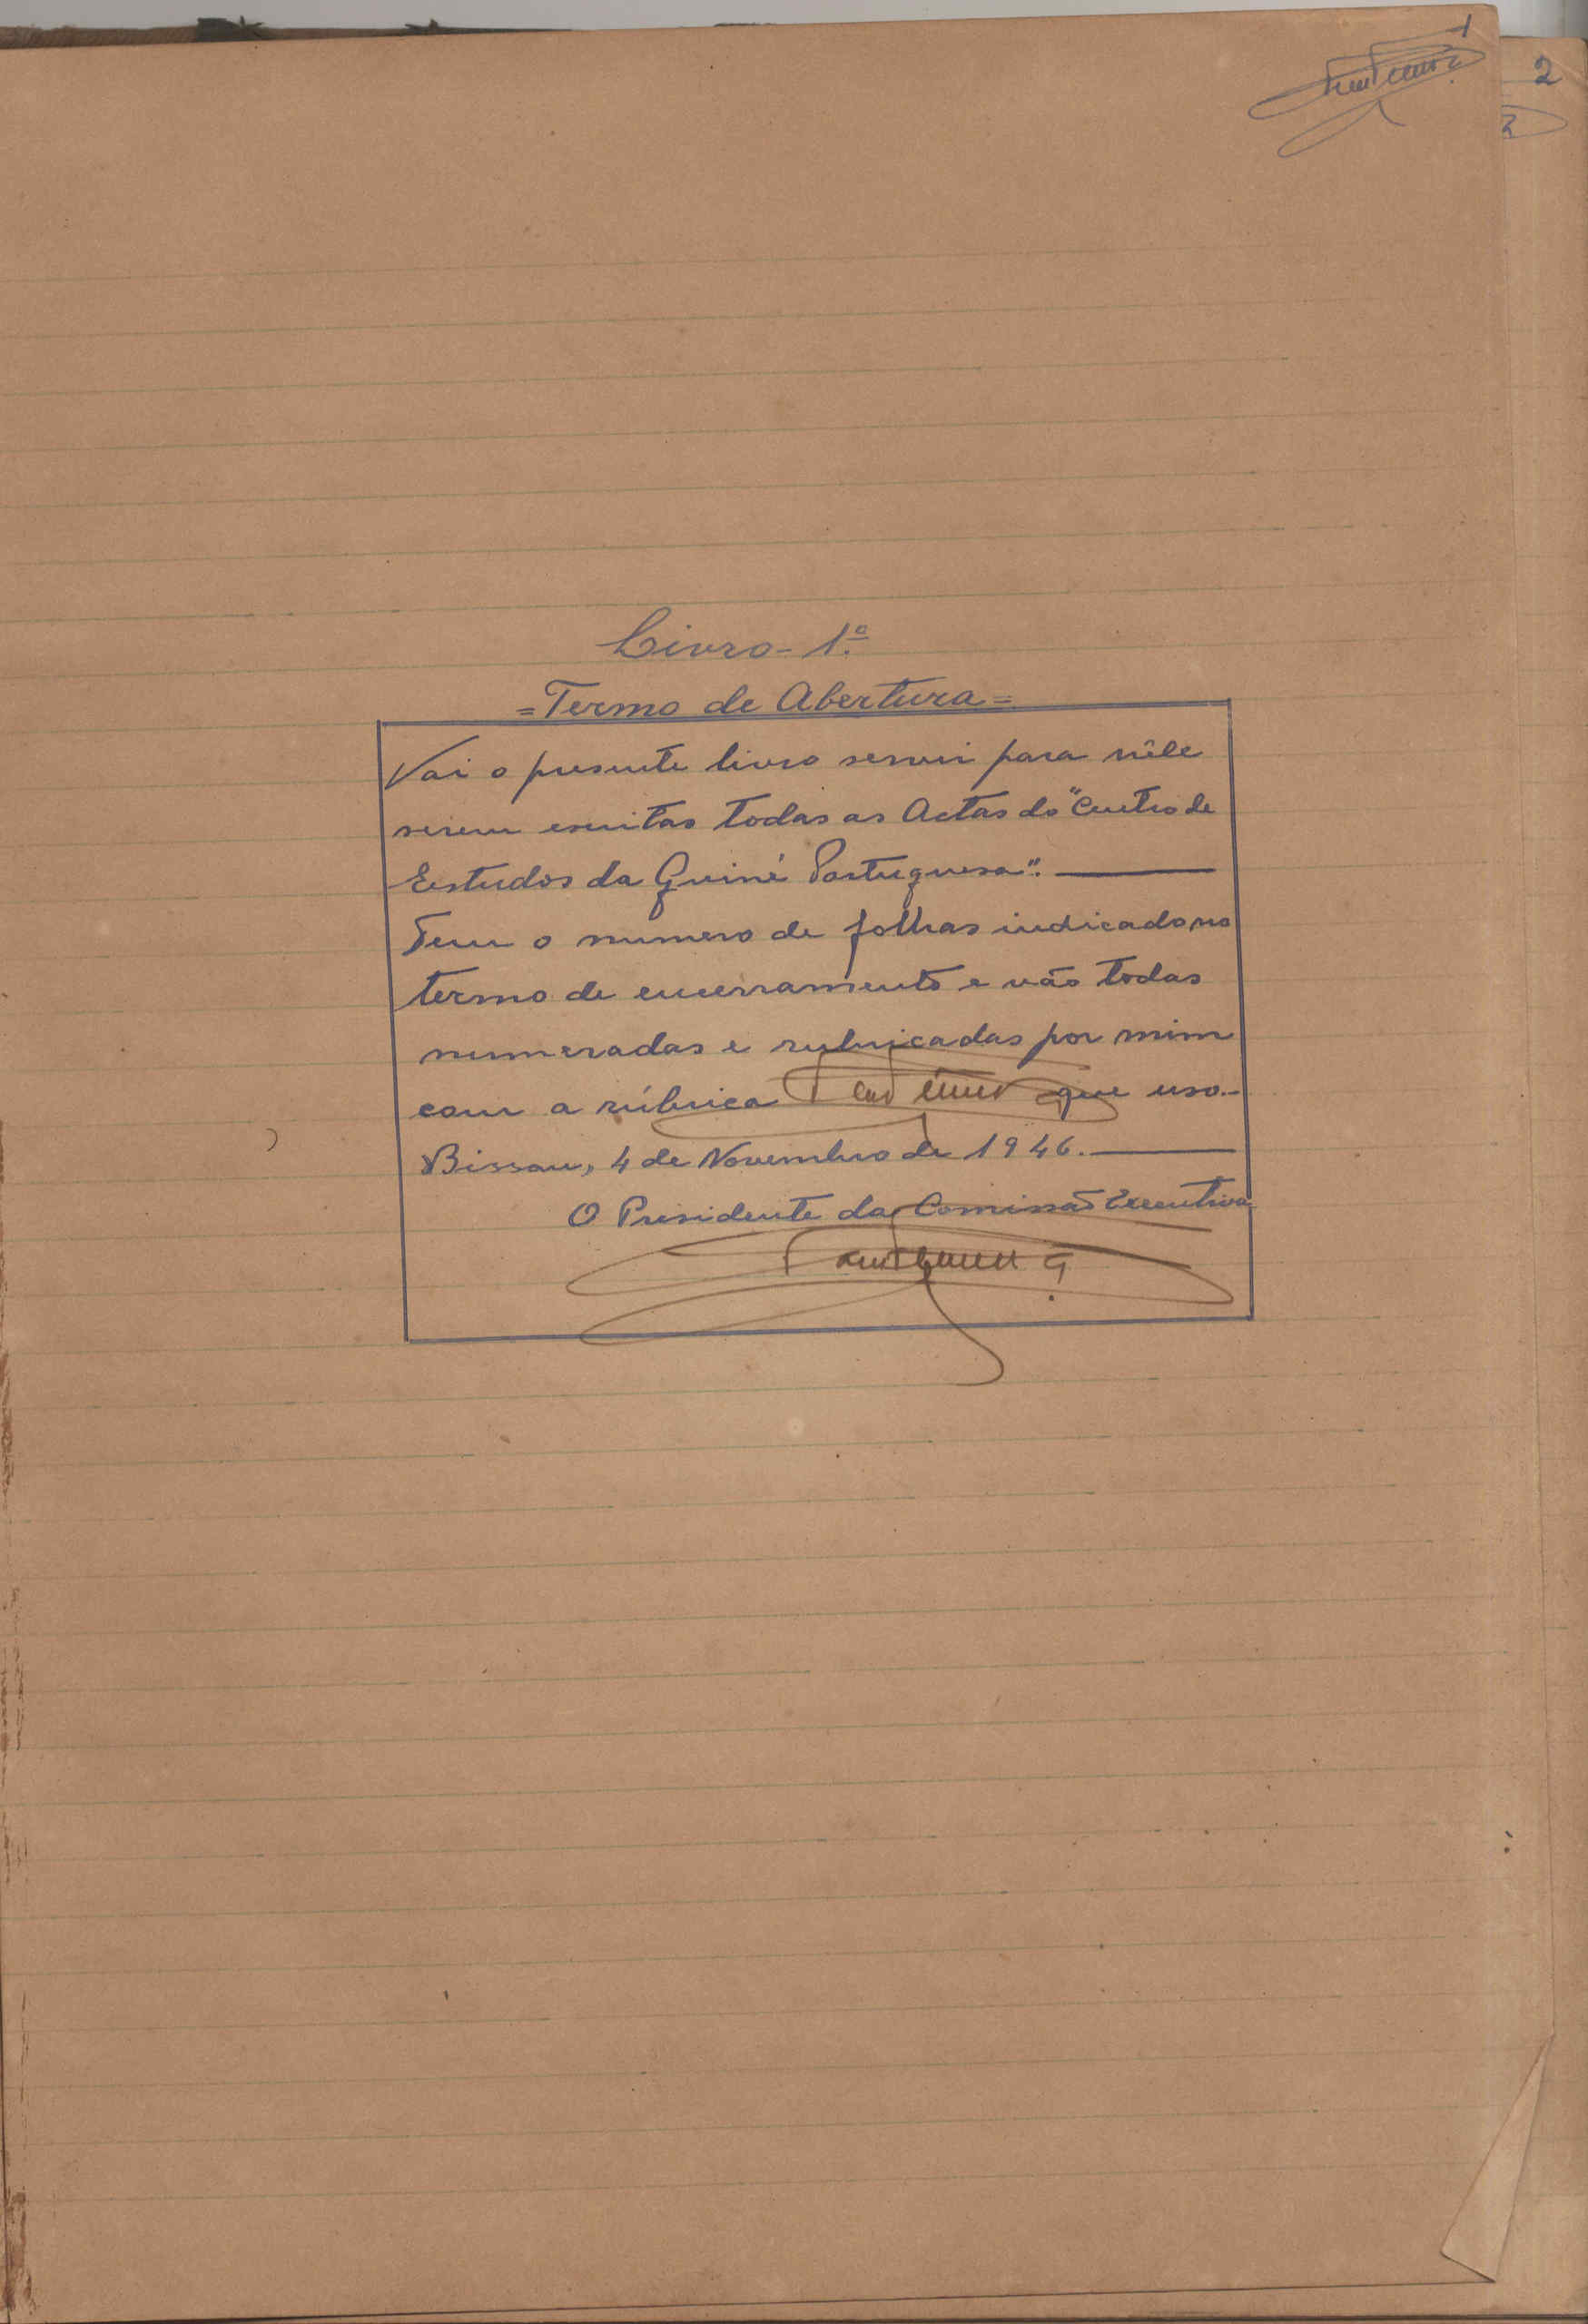 1
2
Livro - 1º.
= Termo de Abertura =
Vai o presente livro servir para nêle
serem escritas todas as Actas do "Centro de
Estudos da Guiné Portuguesa".
Tem o numero de folhas indicado no
termo de encerramento e vão todas
numeradas e rubricadas por mim
com a rúbrica que uso.-
Bissau, 4 de Novembro de 1946.
O Presidente da Comissão Executiva